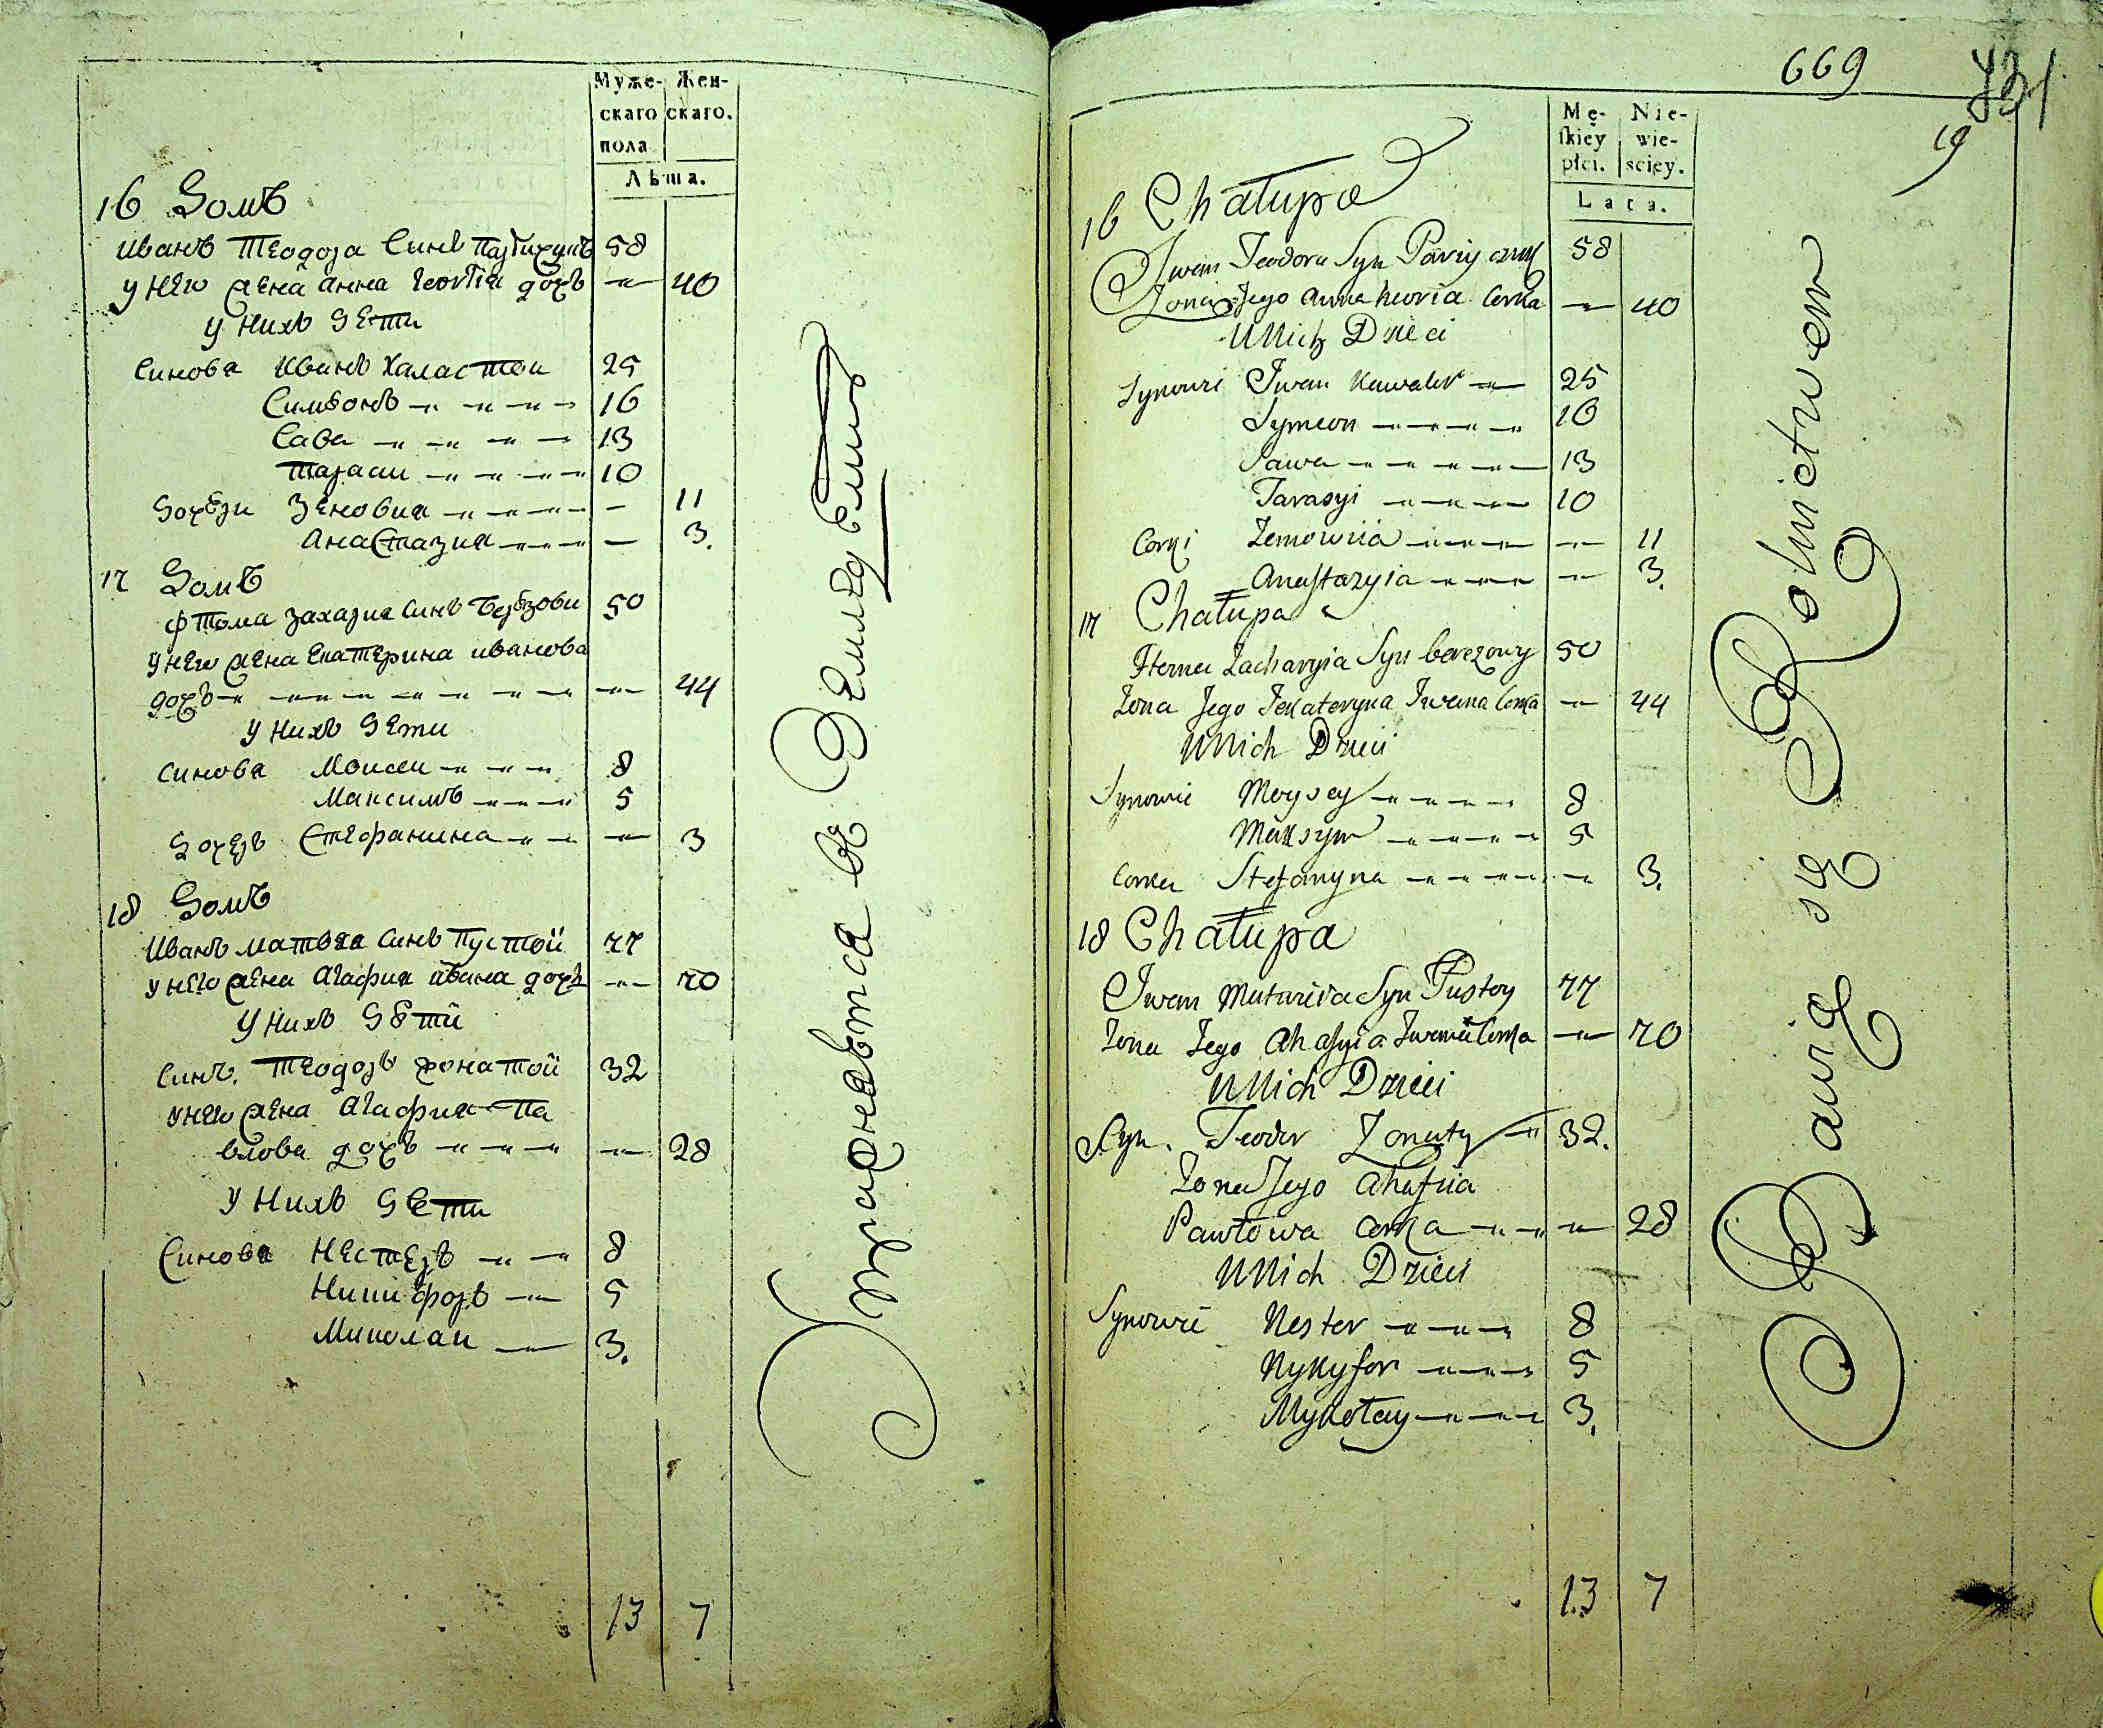 Муже- Жен-
скаго скаго.
пола
Лѣта.
16 Домъ
Иванъ Теодора Синъ 58
у него жена Анна Георгія дочь — 40
у нихъ дети
Синова Иванъ Халастои 25
Симеонъ 16
Сава 13
Тараси 10
Дочери Зеновия — 11
Анастазия — 3.
17 Домъ
Фтома Захария Синъ Березови 50
у него жена Екатерина иванова
дочь — 44
у нихъ дети
синова Моисеи 8
Максимъ 5
дочерь Стефанина — 3
18 Домъ
Иванъ Матвея Синъ Пустой 77
у него жена Агафия ивана дочь — 70
у нихъ дѣти
Синъ. Теодоръ жонатой 32
у него жена Агафия Па
влова дочь — 28
у нихъ дети
Синова Нестеръ 8
Никифоръ 5
Миколаи 3.
13 7
Упражняется въ Земледелии
669
19
Mę- Nie-
skiey wie-
płci. sciey.
Lata.
16 Chałupa
Iwan Teodora Syn 58
Zona Jego Anna Heoria Corka — 40
U Nich Dzieci
Synowie Iwan Kawaler 25
Symeon 16
Sawa 13
Tarasyi 10
Corki Zenowiia — 11
Anastazyia — 3.
17 Chałupa
Ftoma Zacharyia Syn berezowy 50
Zona Jego Jekateryna Iwana Corka — 44
U Nich Dzieci
Synowie Moysey 8
Maksym 5
Corka Stefanyna — 3.
18 Chałupa
Iwan Matwieia Syn Pustoy 77
Zona Jego Ahafyia Iwana Corka — 70
U Nich Dzieci
Syn. Teodor Zonaty 32.
Zona Jego Ahafiia
Pawłowa Corka — 28
U Nich Dzieci
Synowie Nester 8
Nykyfor 5
Mykołay 3.
13 7
Bawią się Rolnictwem